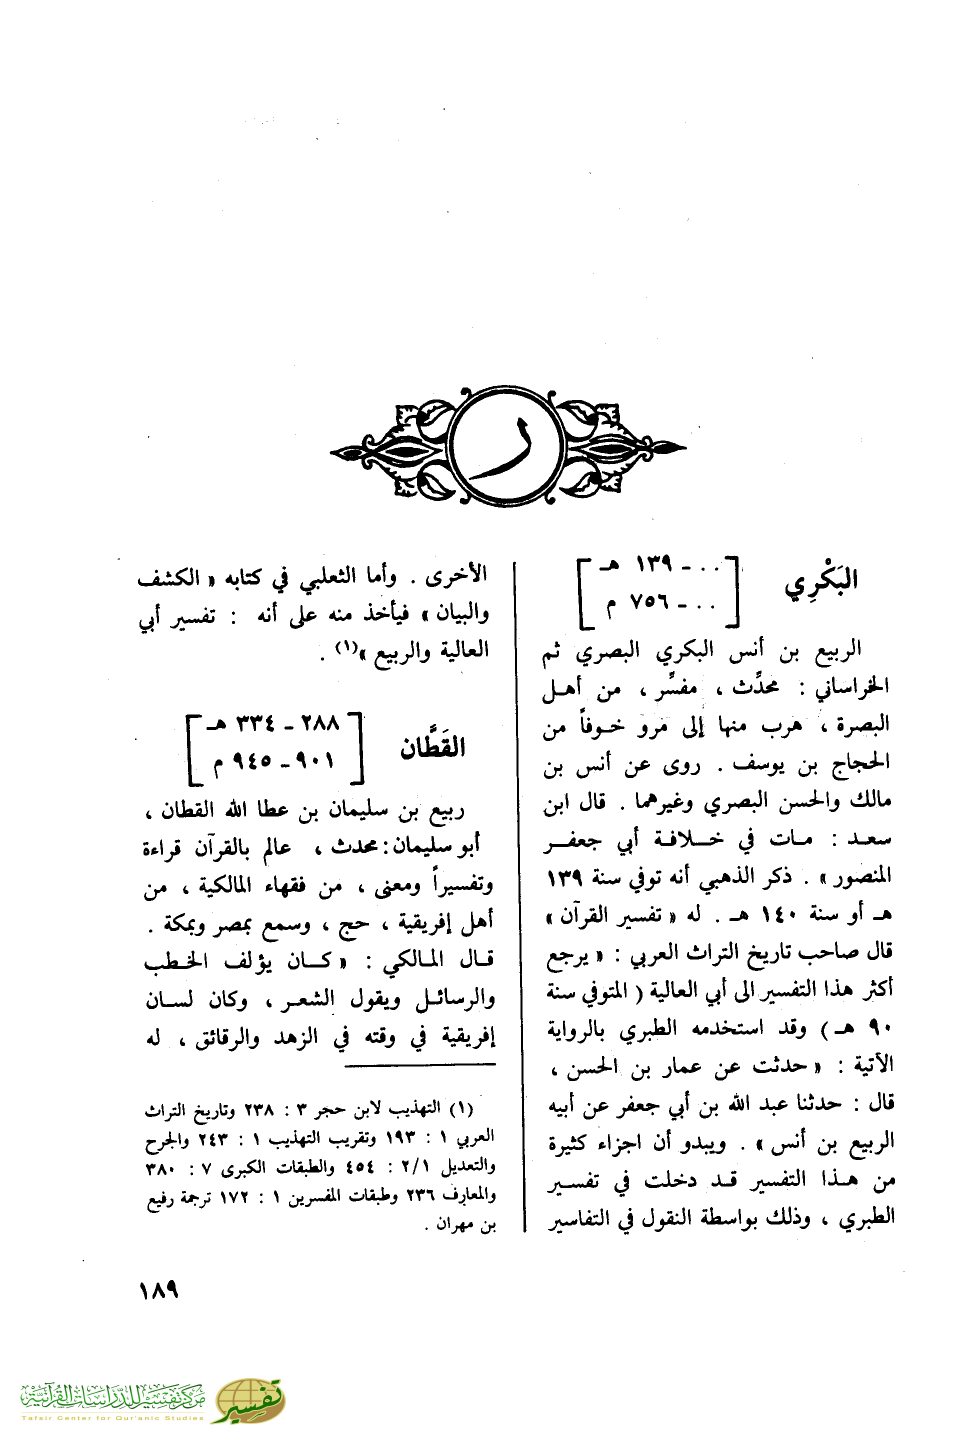 ر
البَكْرِي
٠٠ ـ ١٣٩ هـ
٠٠ ـ ٧٥٦ م
الربيع بن أنس البكري البصري ثم
الخراساني : محدِّث ، مفسِّر ، من أهل
البصرة ، هرب منها إلى مرو خوفاً من
الحجاج بن يوسف . روى عن أنس بن
مالك والحسن البصري وغيرهما . قال ابن
سعد : مات في خلافة أبي جعفر
المنصور» . ذكر الذهبي أنه توفي سنة ١٣٩
هـ أو سنة ١٤٠ هـ . له « تفسير القرآن »
قال صاحب تاريخ التراث العربي : « يرجع
أكثر هذا التفسير الى أبي العالية ( المتوفي سنة
٩٠ هـ ) وقد استخدمه الطبري بالرواية
الآتية : « حدثت عن عمار بن الحسن ،
قال : حدثنا عبد الله بن أبي جعفر عن أبيه
الربيع بن أنس » . ويبدو أن اجزاء كثيرة
من هذا التفسير قد دخلت في تفسير
الطبري ، وذلك بواسطة النقول في التفاسير
الأخرى . وأما الثعلبي في كتابه « الكشف
والبيان » فيأخذ منه على أنه : تفسير أبي
العالية والربيع »(١) .
القَطَّان
٢٨٨ ـ ٣٣٤ هـ
٩٠١ ـ ٩٤٥ م
ربيع بن سليمان بن عطا الله القطان ،
أبو سليمان : محدث ، عالم بالقرآن قراءة
وتفسيراً ومعنى ، من فقهاء المالكية ، من
أهل إفريقية ، حج ، وسمع بمصر وبمكة .
قال المالكي : « كان يؤلف الخطب
والرسائل ويقول الشعر ، وكان لسان
إفريقية في وقته في الزهد والرقائق ، له
(١) التهذيب لابن حجر ٣ : ٢٣٨ وتاريخ التراث
العربي ١ : ١٩٣ وتقريب التهذيب ١ : ٢٤٣ والجرح
والتعديل ٢/١ : ٤٥٤ والطبقات الكبرى ٧ : ٣٨٠
والمعارف ٢٣٦ وطبقات المفسرين ١ : ١٧٢ ترجمة رفيع
بن مهران .
١٨٩
مركز تفسير للدراسات القرآنية
Tafsir Center for Qur'anic Studies
تفسير